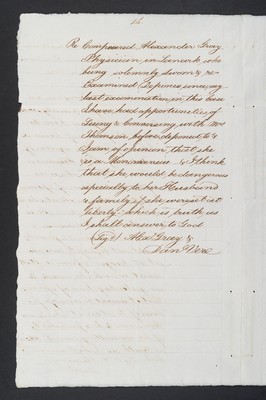 14
Re Compeared Alexander Gray
Physician in Lanark who
being solemnly sworn & re-
Examined Depones since my
last examination in this case
I have had opportunities of
Seeing & Conversing with Mrs
Thomson before deponed to &
I am of opinion that she
is a Monomaniac & I think
that she would be dangerous
especially to her Husband
& family if she were set at
liberty which is truth as
I shall answer to God
(Sigd) Alexr Gray